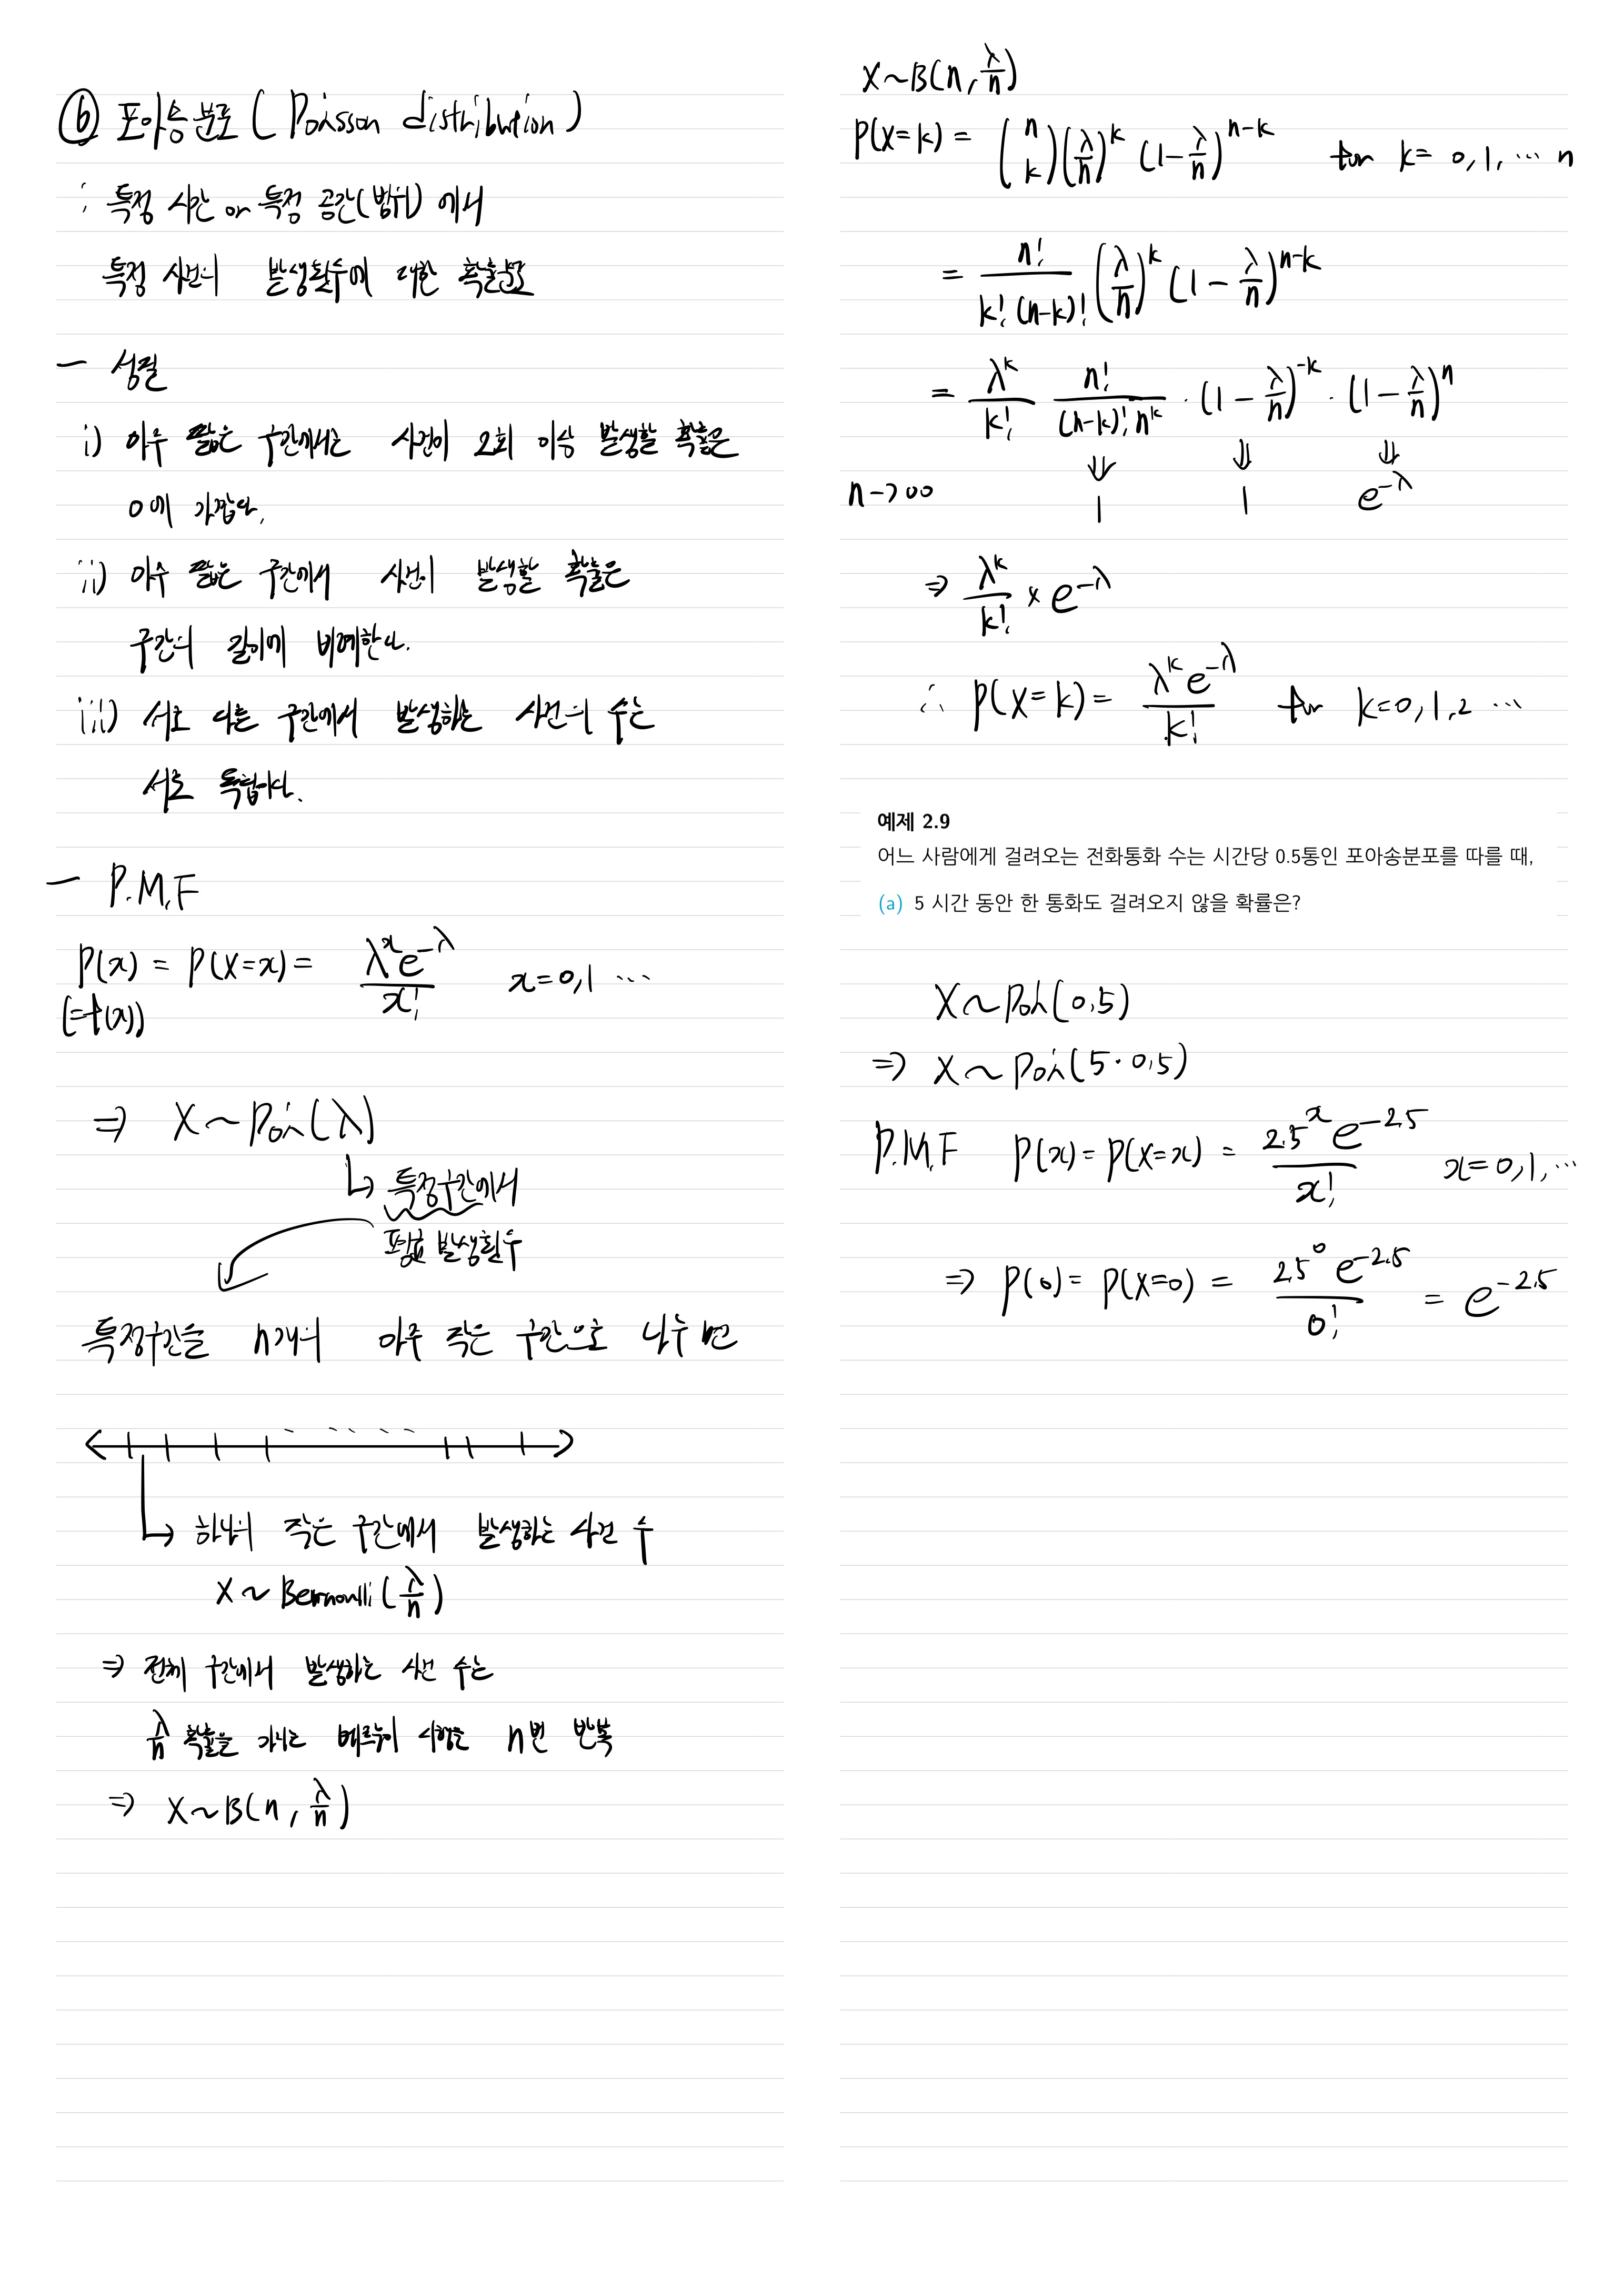 ⑥ 포아송 분포 ( Poisson distribution )
: 특정 시간 or 특정 공간(범위) 에서
특정 사건의 발생횟수에 대한 확률분포
- 성질
i) 아주 짧은 구간에서는 사건이 2회 이상 발생할 확률은
0에 가깝다.
ii) 아주 짧은 구간에서 사건이 발생할 확률은
구간의 길이에 비례한다.
iii) 서로 다른 구간에서 발생하는 사건의 수는
서로 독립이다.
- P.M.F
P(x) = P(X=x) = λ^x e^-λ / x! x=0,1 ⋯
(=f(x))
⇒ X ~ Poi(λ)
↳ 특정구간에서
평균 발생횟수
특정구간을 n개의 아주 작은 구간으로 나누면
↳ 하나의 작은 구간에서 발생하는 사건 수
X ~ Bernoulli (λ/n)
⇒ 전체 구간에서 발생하는 사건 수는
λ/n 확률을 가지는 베르누이 시행을 n번 반복
⇒ X ~ B(n, λ/n)
X ~ B(n, λ/n)
P(X=k) = (n k)(λ/n)^k (1-λ/n)^n-k for k= 0,1,⋯ n
= n! / k!(n-k)! (λ/n)^k (1 - λ/n)^n-k
= λ^k / k! n! / (n-k)! n^k · (1 - λ/n)^-k · (1 - λ/n)^n
⇓ ⇓ ⇓
n→∞ 1 1 e^-λ
⇒ λ^k / k! × e^-λ
∴ P(X=k) = λ^k e^-λ / k! for k=0,1,2 ⋯
예제 2.9
어느 사람에게 걸려오는 전화통화 수는 시간당 0.5통인 포아송분포를 따를 때,
(a) 5 시간 동안 한 통화도 걸려오지 않을 확률은?
X ~ Poi(0.5)
⇒ X ~ Poi(5·0.5)
P.M.F P(x) = P(X=x) = 2.5^x e^-2.5 / x! x=0,1,⋯
⇒ P(0) = P(X=0) = 2.5^0 e^-2.5 / 0! = e^-2.5